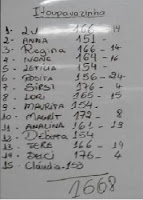 Itoupavazinha
1- LU 166 - 14
2- ANNA 151
3- Regina 166 - 14
4- IVONE 164 - 16
5- LETICIA 154
6- ROSITA 156 - 24
7- SIRSI 176 - 4
8- LORI 165 - 15
9- MAURITA 154
10- MAURIT 172 - 8
11- ANALINA 161 - 19
12- Débora 154
13- TERE 166 - 14
14- Deci 176 - 4
15- Claudia 153
1668